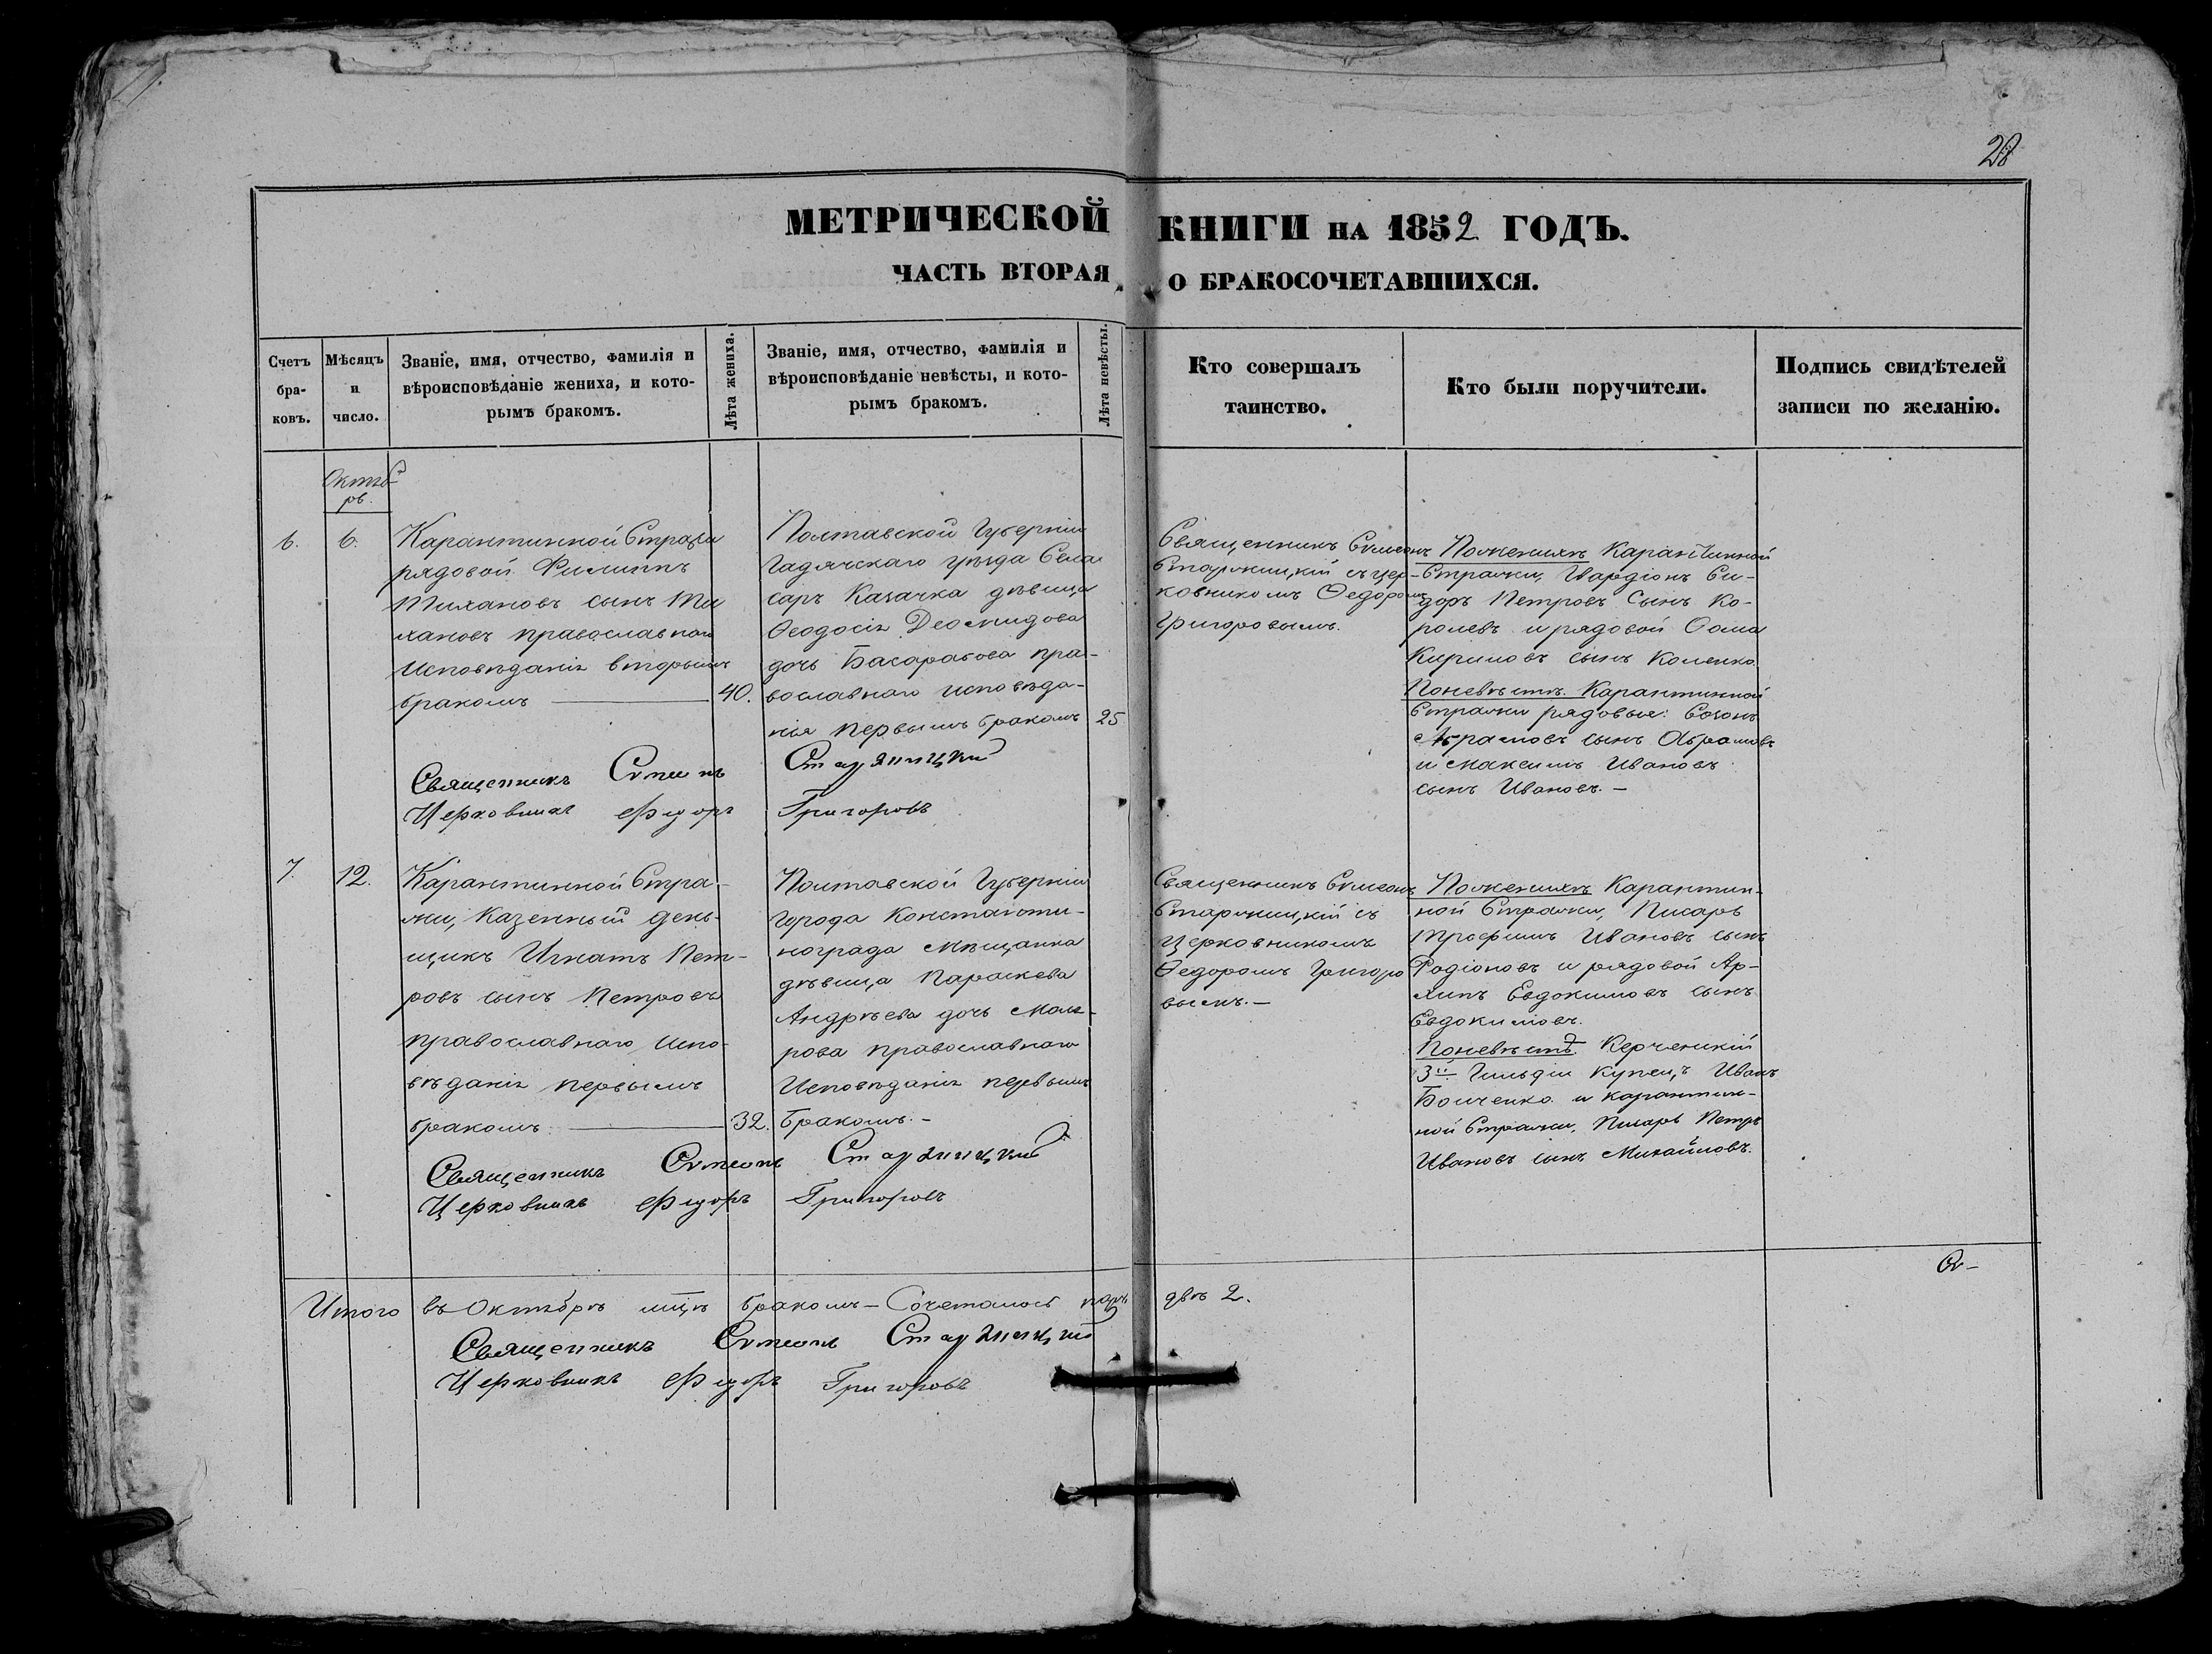 28
МЕТРИЧЕСКОЙ КНИГИ НА 1852 ГОДЪ.
ЧАСТЬ ВТОРАЯ О БРАКОСОЧЕТАВШИХСЯ.
Счетъ
бра-
ковъ.
Мѣсяцъ
и
число.
Званіе, имя, отчество, фамилія и
вѣроисповѣданіе жениха, и кото-
рымъ бракомъ.
Лѣта жениха.
Званіе, имя, отчество, фамилія и
вѣроисповѣданіе невѣсты, и кото-
рымъ бракомъ.
Лѣта невѣсты.
Кто совершалъ
таинство.
Кто были поручители.
Подпись свидѣтелей
записи по желанію.
Октяб
рь.
6.
6.
Карантинной Стражи
рядовой Филиппъ
сынъ
православнаго
Исповѣданія вторымъ
бракомъ
40.
Полтавской Губерніи
Гадячскаго уѣзда Села
Казачка дѣвица
Ѳеодосія Деомидова
дочь Басарабова пра-
вославнаго исповѣда-
нія первымъ бракомъ
25
Священникъ Сѵмеонъ
Старжицкій съ цер-
ковникомъ Ѳедоромъ
Григоровымъ.
Поженихѣ Карантинной
Стражи, Гвардіонъ Си-
доръ Петровъ Сынъ Ко-
ролевъ и рядовой Ѳома
Кириловъ сынъ Коленко.
Поневѣстѣ. Карантинной
Стражи рядовые: Созонъ
Абрамовъ сынъ Абрамовъ
и Максимъ Ивановъ
сынъ Ивановъ. —
Священникъ Сѵмеонъ Старжицкій
Церковникъ Ѳедоръ Григоровъ
7.
12.
Карантинной Стра-
жи, Казенный день-
щикъ Игнатъ Пет-
ровъ сынъ Петровъ
православнаго Испо-
вѣданія первымъ
бракомъ
32.
Полтавской Губерніи
города Константи-
нограда Мѣщанка
дѣвица Параскева
Андрѣева дочь
православнаго
Исповѣданія первымъ
бракомъ. —
Священникъ Сѵмеонъ
Старжицкій съ
Церковникомъ
Ѳедоромъ Григоро
вымъ. —
Поженихѣ Карантин-
ной Стражи, Писарь
Трофимъ Ивановъ сынъ
Родіоновъ и рядовой Ар-
хипъ Евдокимовъ сынъ
Евдокимовъ.
Поневѣстѣ Керченскій
3й Гильдіи Купецъ Иванъ
Бойченко и карантин-
ной Стражи, Писарь Петръ
Ивановъ сынъ Михайловъ.
Священникъ Сѵмеонъ Старжицкій
Церковникъ Ѳедоръ Григоровъ
Итого въ Октябрѣ мцѣ бракомъ — Сочеталось паръ двѣ 2.
Священникъ Сѵмеонъ Старжицкій
Церковникъ Ѳедоръ Григоровъ